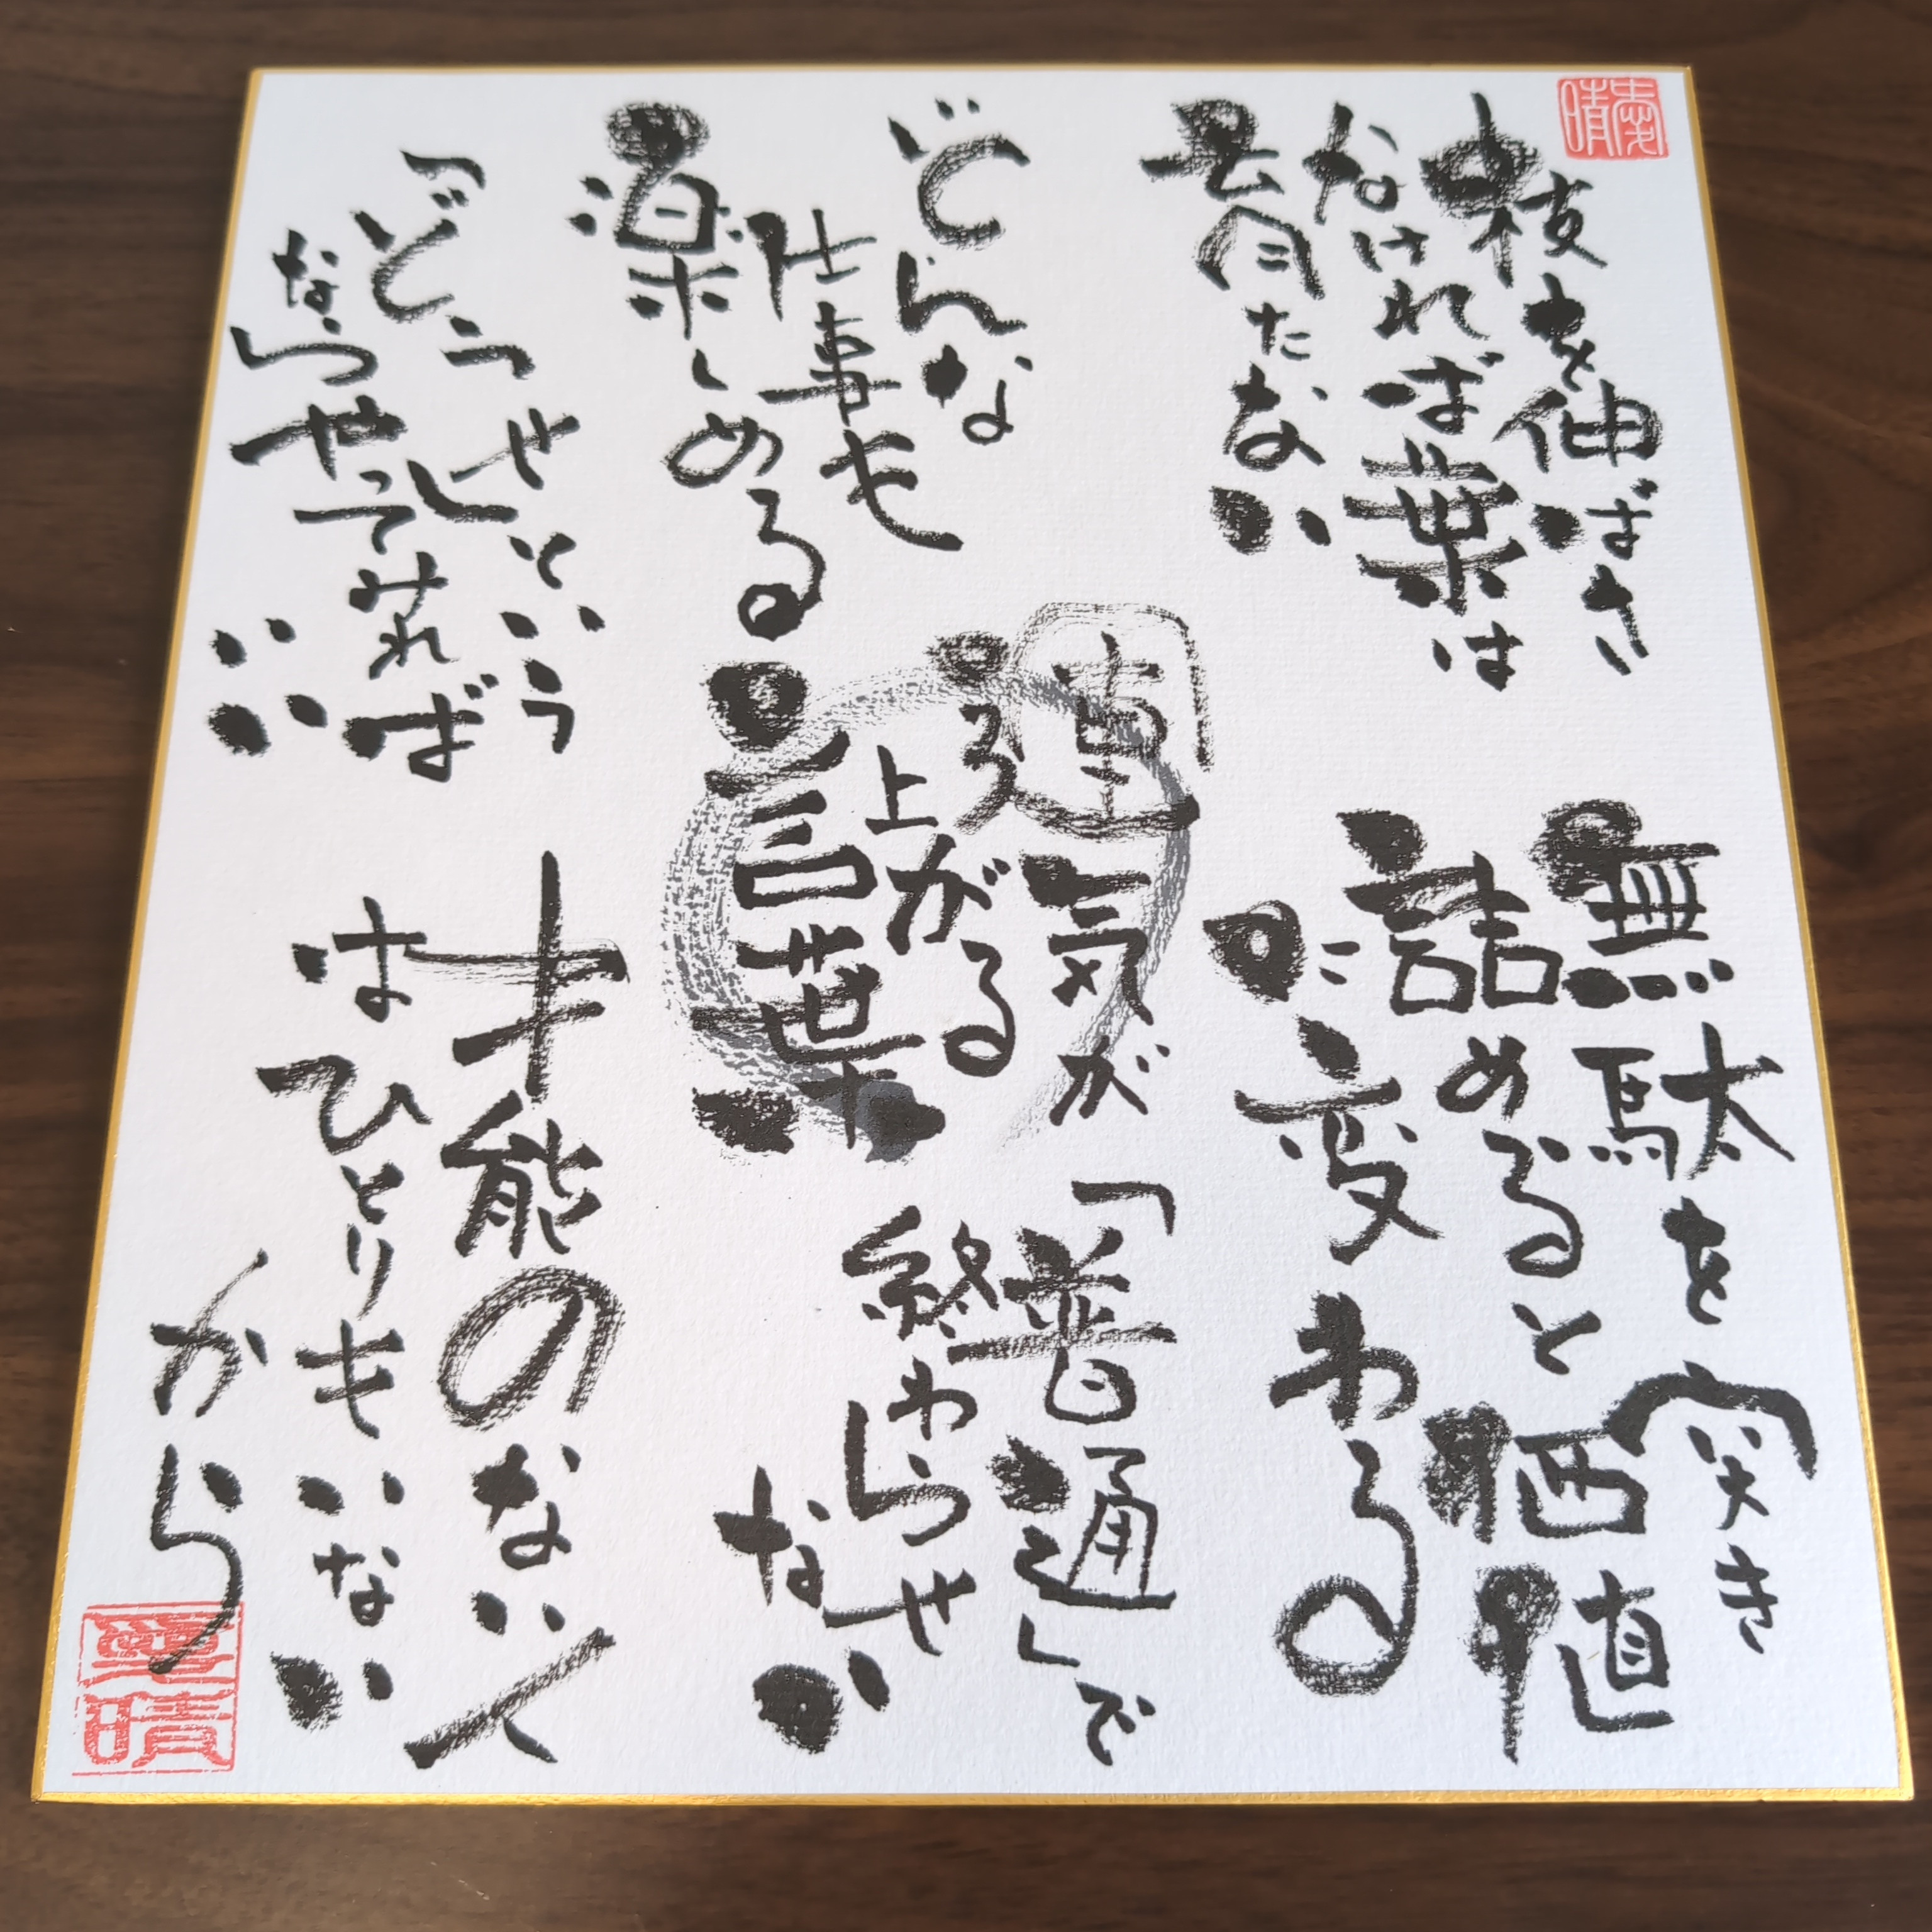 枝を伸ばさ
なければ葉は
育たない
無駄を突き
詰めると価値
に変わる
どんな
仕事も
楽しめる
運気が
上がる
言葉
「普通」で
終わらせ
ない
「どうせ」という
ならやってみれば
いい
才能のない人
はひとりもいない
から
愛晴
愛晴